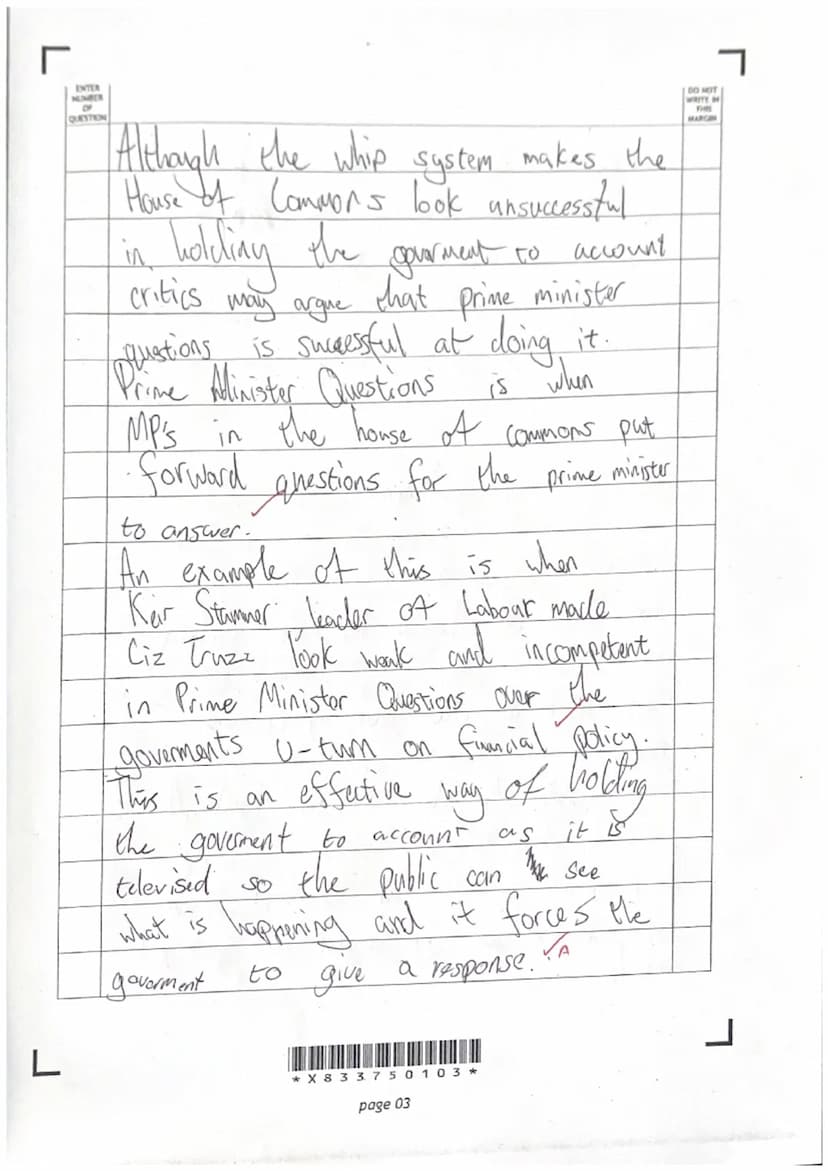 ENTER
NUMBER
OF
QUESTION
DO NOT
WRITE IN
THIS
MARGIN
Although the whip system makes the
House of Commons look unsuccessful
in holding the goverment to account
critics may argue that prime minister
questions is successful at doing it.
Prime Minister Questions is when
MP's in the house of commons put
forward questions for the prime minister
to answer.
An example of this is when
Keir Starmer leader of Labour made
Liz Truzz look weak and incompetent
in Prime Minister Questions over the
goverments U-turn on financial policy.
This is an effective way of holding
the goverment to account as it is
televised so the public can see
what is happening and it forces the
goverment to give a response. A
*X833750103*
page 03